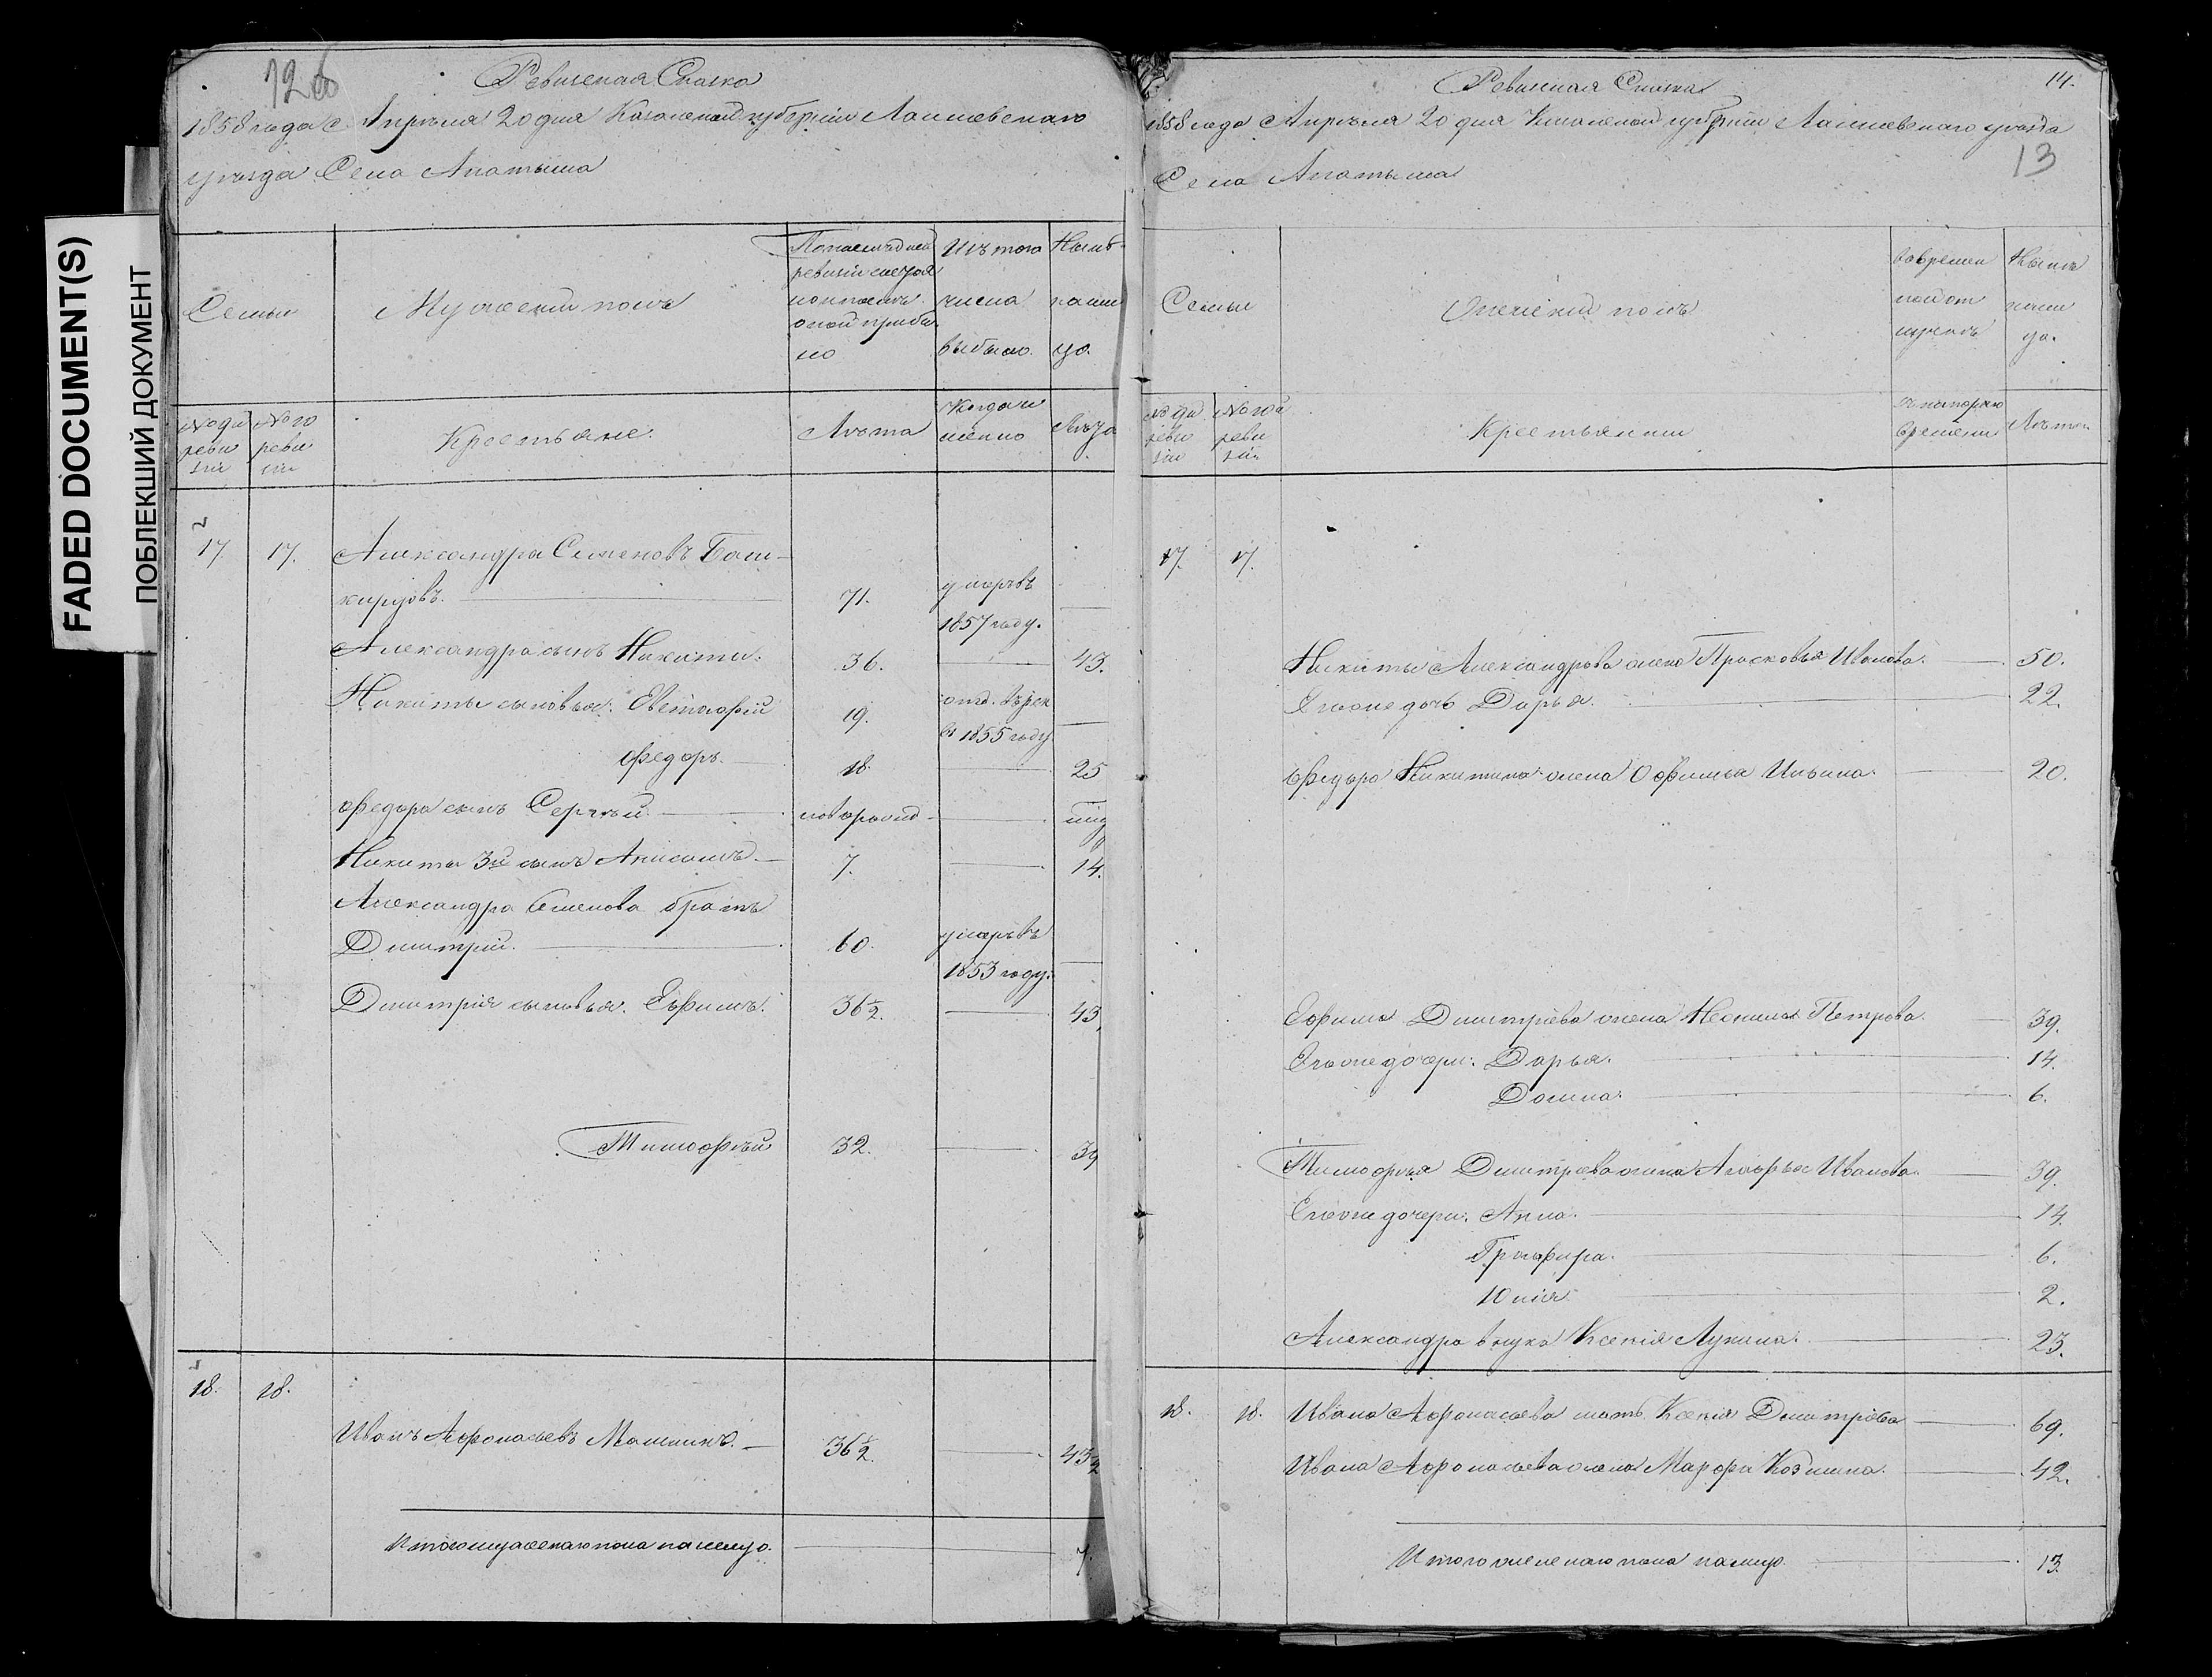 FADED DOCUMENT(S)
ПОБЛЕКШИЙ ДОКУМЕНТ
12 об
Ревизская Сказка
1858 года Апреля 20 дня Казанской губернии Лаишевского
уезда Села Анатыша
Семьи
Мужеский полъ
По последней
ревизии состоя
ло и после
оной прибы
ло
Изъ того
числа
выбыло.
Ныне
на ли
цо.
№ 9й
реви
зiи
№ 10
реви
зiи
Крестьяне.
Лета
Когда и
менно
Лета
17. 17. Александра Семеновъ Баш-
кировъ. 71. умеръ въ
1857 году.
Александра сынъ Никита. 36. 43.
Никиты сыновья: Евстафiй 19. отд. въ рек
въ 1855 году
Федоръ. 18. 25
Федора сынъ Сергей новорожд
Никиты 3й сынъ Анисимъ 7. 14.
Александра Семенова братъ
Дмитрiй. 60. умеръ въ
1853 году.
Дмитрiя сыновья. Ефимъ. 36½. 43.
Тимофей 32. 39
18. 18.
Иванъ Афонасьевъ Машинъ. 36½. 43½
Итого мужескаго пола на лицо. 7.
Ревизская Сказка 14.
1858 года Апреля 20 дня Казанской губернiи Лаишевского уезда
13
Села Анатыша
Семьи
Женскiй полъ
Во времен
ной от
лучке
Ныне
на ли
цо.
№ 9й
реви
зiи
№ 10й
реви
зiи
Крестьянки
съ котораго
времени
Лета
17. 17.
Никиты Александрова жена Прасковья Иванова. 50.
Его же дочь Дарья. 22.
Федора Никитина жена Офимья Ильина. 20.
Ефима Дмитрiева жена Неонила Петрова. 39.
Его же дочери: Дарья. 14.
Домна. 6.
Тимофея Дмитрiева жена Марья Иванова. 39.
Его же дочери. Анна. 14.
Гликфира. 6.
Юлiя. 2.
Александра внука Ксенiя Лукина. 23.
18. 18. Ивана Афонасьева мать Ксенiя Дмитрiева 69.
Ивана Афонасьева жена Марфа Козмина. 42.
Итого женскаго пола на лицо. 13.